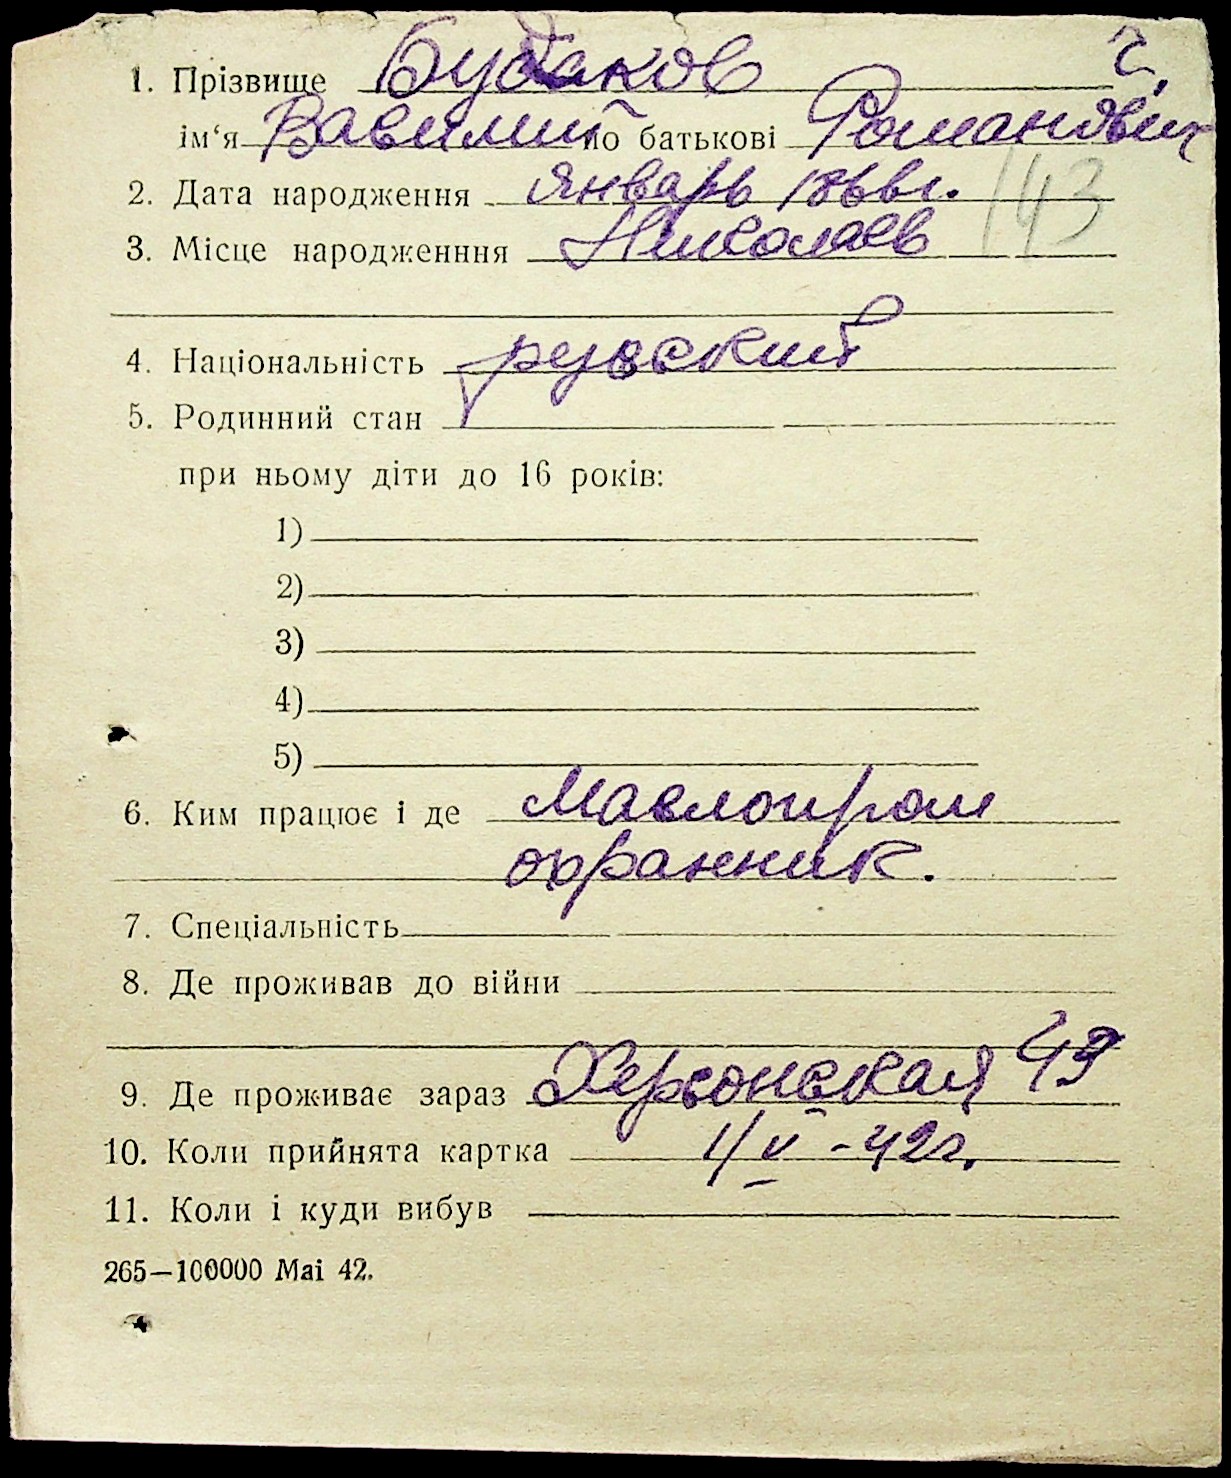 1. Прізвище Будаков г.
ім‘я Василий по батькові Романович
2. Дата народження Январь 1866г. 143
3. Місце народженння Николаев
4. Національність русский
5. Родинний стан
при ньому діти до 16 років:
1)
2)
3)
4)
5)
6. Ким працює і де Маслопром
охранник.
7. Спеціальність
8. Де проживав до війни
9. Де проживає зараз Херсонская 49
10. Коли прийнята картка 1/V - 42г.
11. Коли і куди вибув
265—100000 Mai 42.